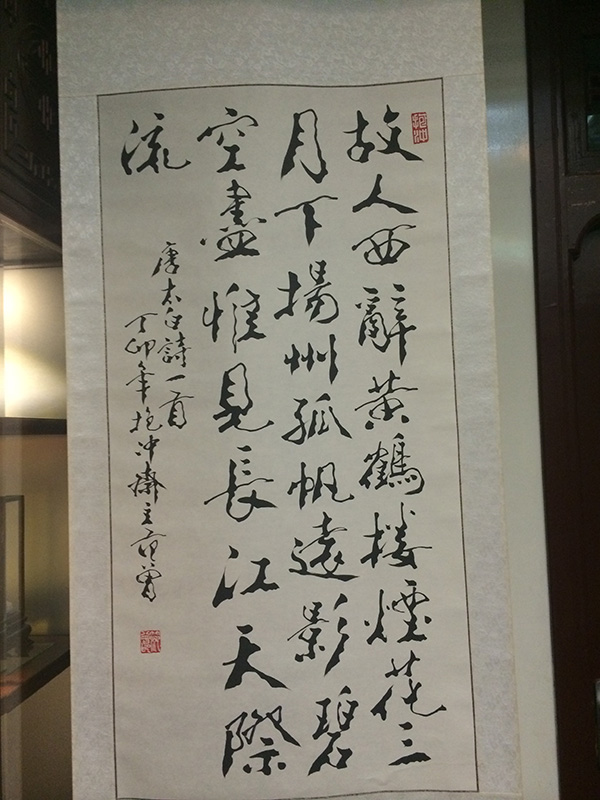 故人西辭黄鶴樓煙花三
月下揚州孤帆遠影碧
空盡惟見長江天際
流
唐太白詩一首
丁卯年抱冲齋主范曾
抱冲